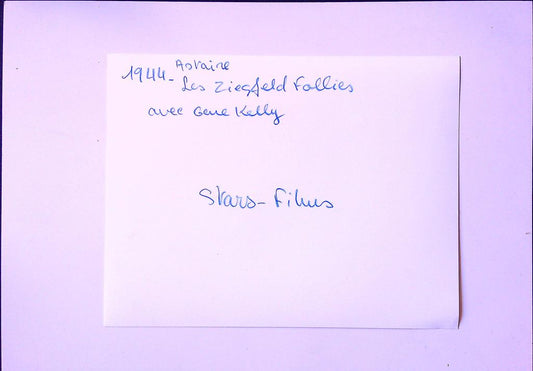 Astaire
1944- Les Ziegfeld Follies
avec Gene Kelly
Stars-Films